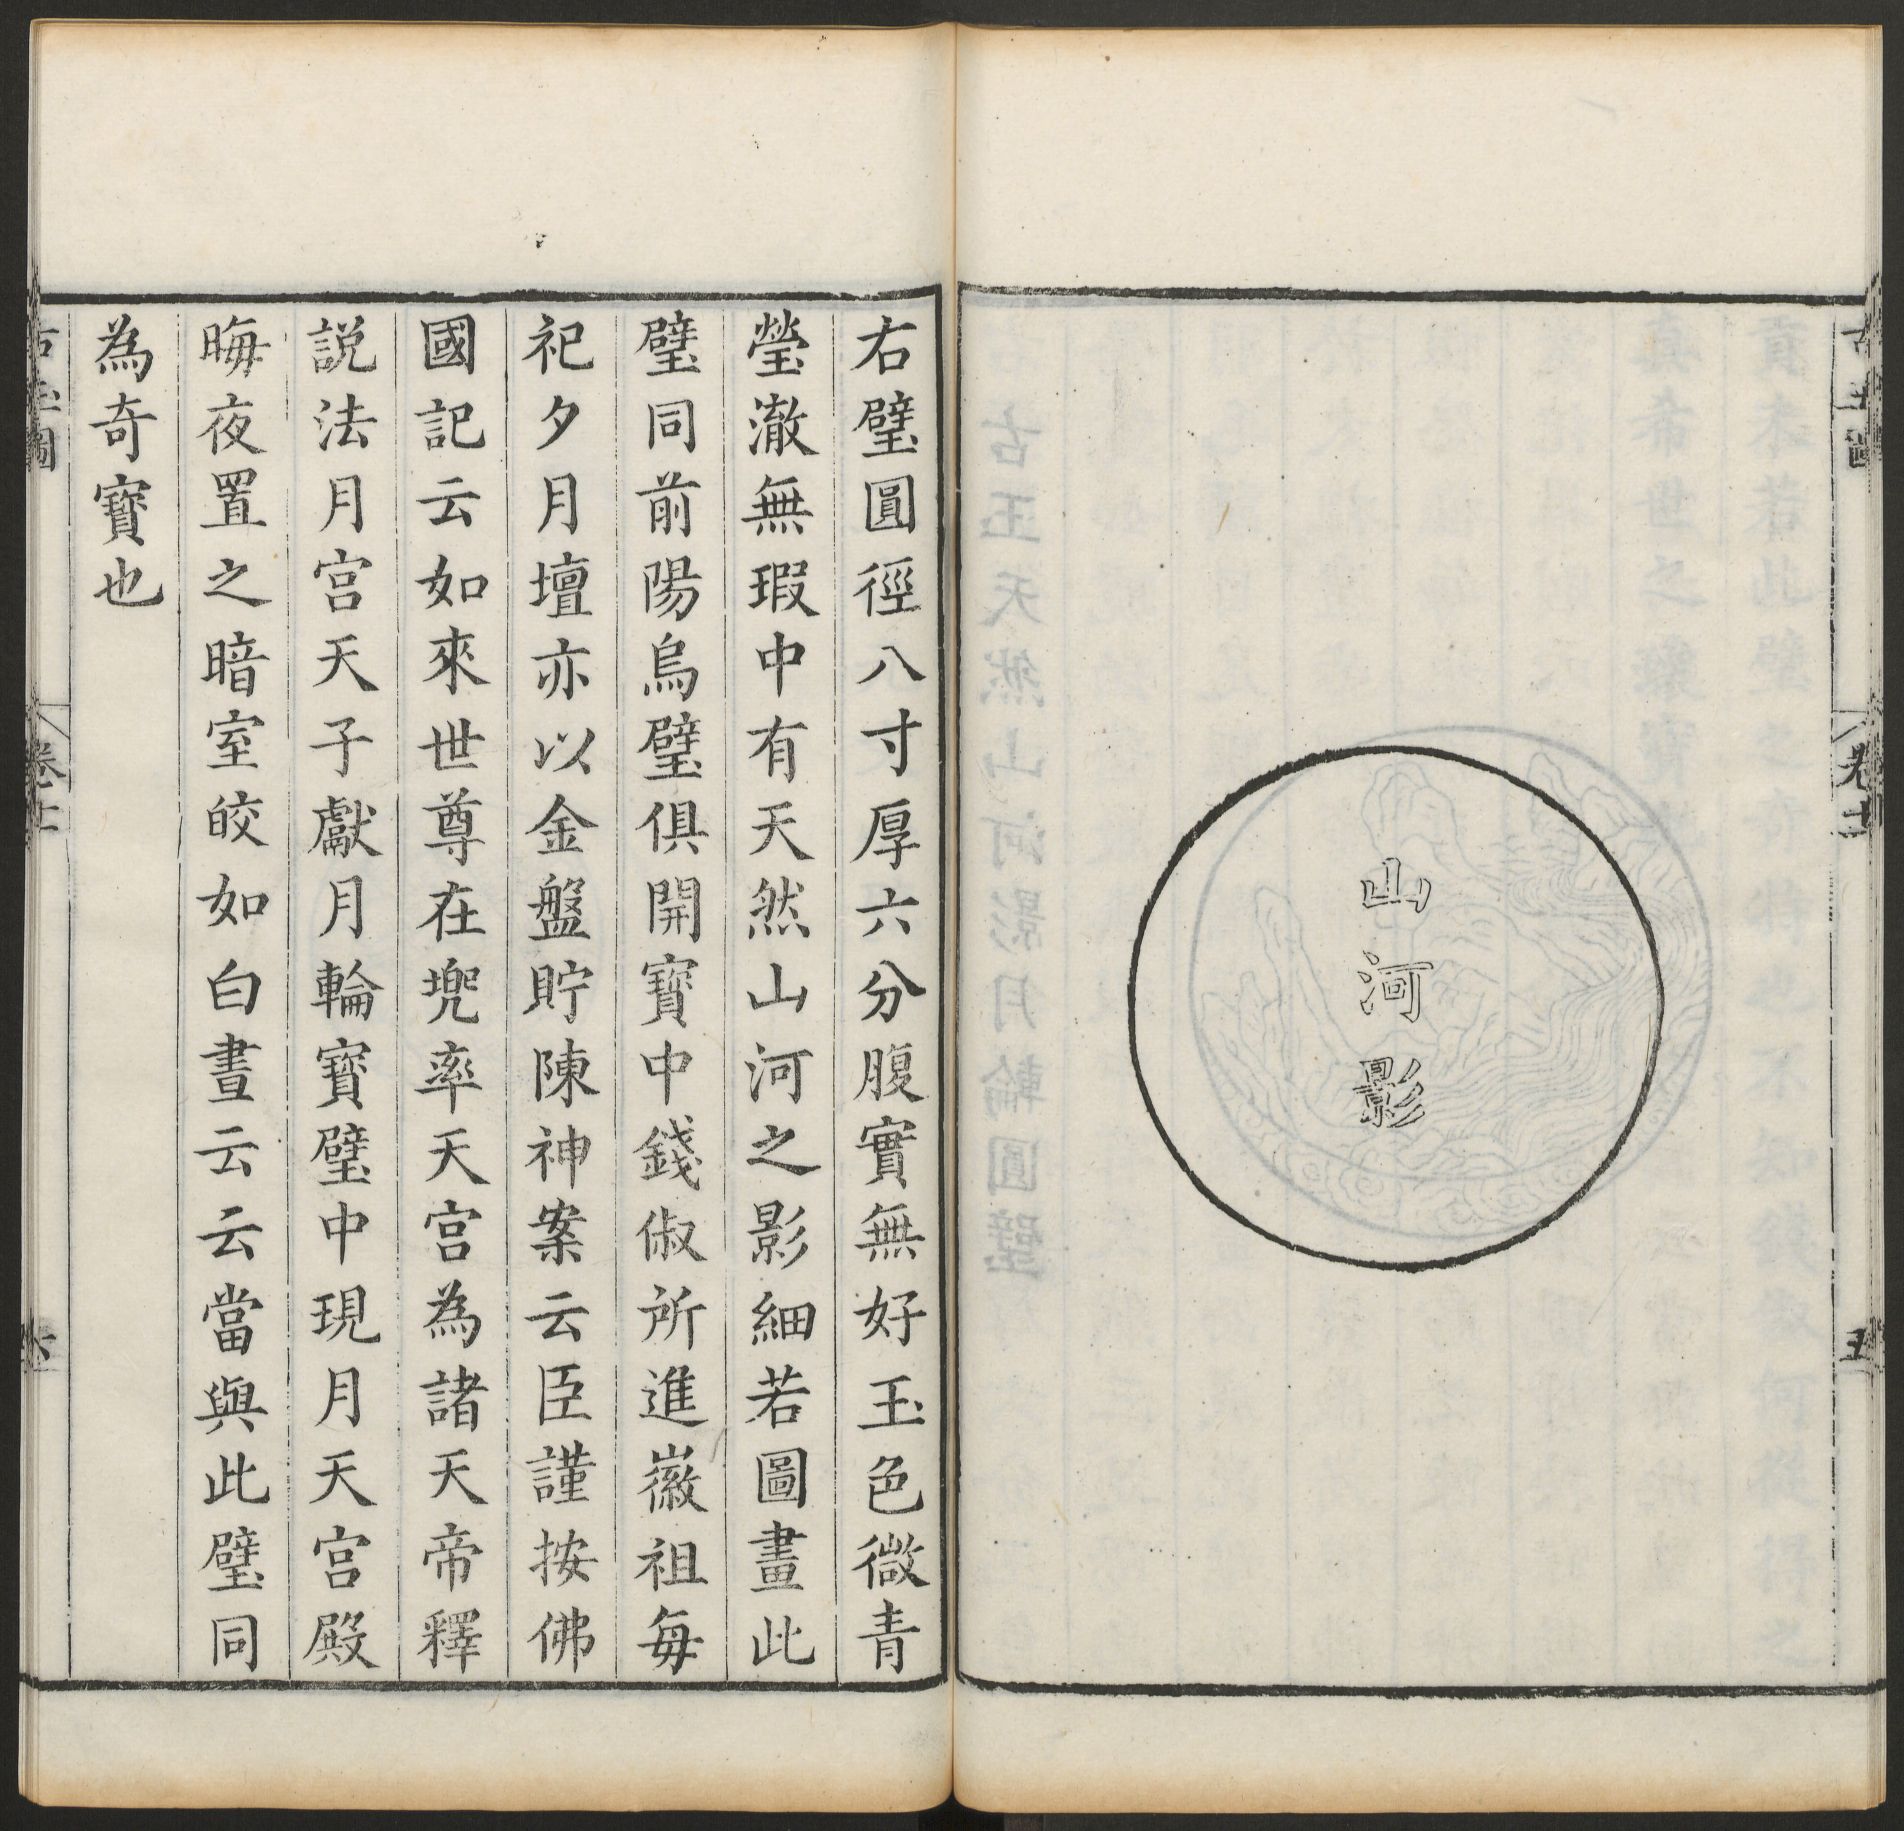 古玉圖
卷十
五
山河影
右璧圓徑八寸厚六分腹實無好玉色微青
瑩澈無瑕中有天然山河之影細若圖畫此
璧同前陽烏璧俱開寶中錢俶所進徽祖每
祀夕月壇亦以金盤貯陳神案云臣謹按佛
國記云如來世尊在兠率天宮為諸天帝釋
說法月宮天子獻月輪寶璧中現月天宮殿
晦夜置之暗室皎如白晝云云當與此璧同
為奇寶也
古玉圖
六